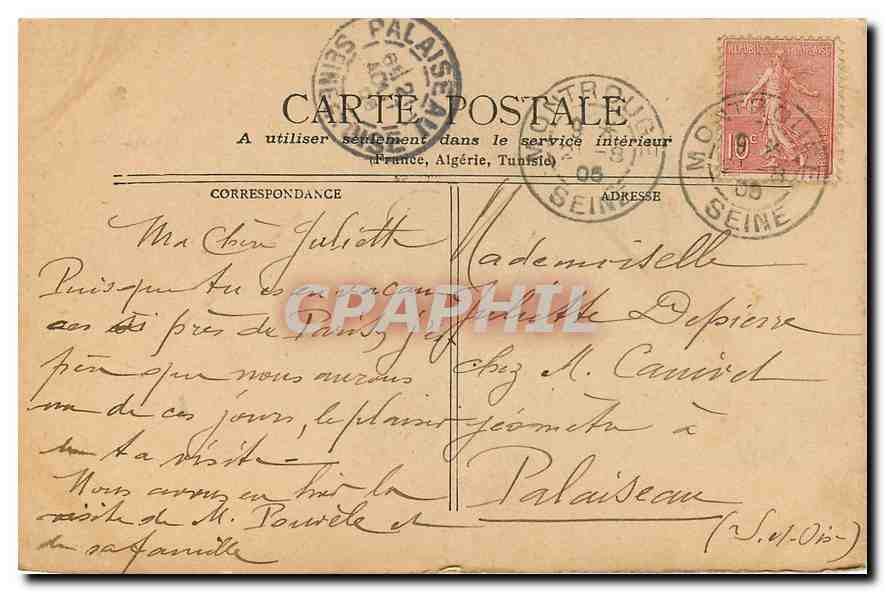 CARTE POSTALE
A utiliser seulement dans le service intérieur
(France, Algérie, Tunisie)
CORRESPONDANCE
Ma chère Juliette
Puisque tu es en vacan
ces si près de Paris, j'es
père que nous aurons
un de ces jours, le plaisir
ta visite -
Nous avons eu hier la
visite de M. et
de sa famille
ADRESSE
Mademoiselle
Juliette Depierre
chez M. Canivet
géomètre à
Palaiseau
(S. et Oise)
PALAISEAU
SEINE OISE
MONTROUGE
05
SEINE
REPUBLIQUE FRANÇAISE
10c
MONTROUGE
05
SEINE
CPAPHIL